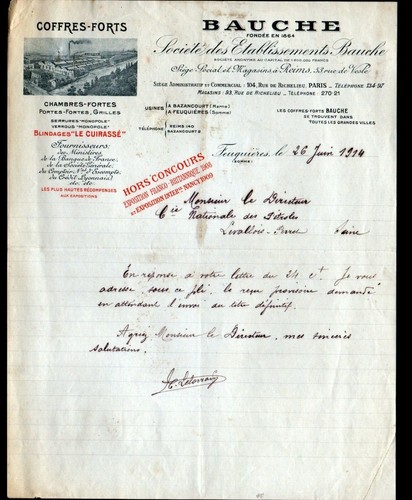 COFFRES-FORTS
CHAMBRES-FORTES
PORTES-FORTES, GRILLES
SERRURES "MONOPOLE"
VERROUS "MONOPOLE"
BLINDAGES "LE CUIRASSÉ"
Fournisseurs:
des Ministères
de la Banque de France
de la Société Générale
du Comptoir Nal d'Escompte
du Crédit Lyonnais
etc. etc.
LES PLUS HAUTES RÉCOMPENSES
AUX EXPOSITIONS
BAUCHE
FONDÉE EN 1864
Société des Etablissements Bauche
SOCIÉTÉ ANONYME AU CAPITAL DE FRANCS
Siège Social et Magasins à Reims, 33, rue de Vesle
SIÈGE ADMINISTRATIF ET COMMERCIAL - 104, RUE DE RICHELIEU, PARIS - TÉLÉPHONE 134-97
MAGASINS: 93, RUE DE RICHELIEU - TÉLÉPHONE 270-21
USINES À BAZANCOURT (Marne)
À FEUQUIÈRES (Somme)
TÉLÉPHONE REIMS 140
BAZANCOURT
LES COFFRES-FORTS BAUCHE
SE TROUVENT DANS
TOUTES LES GRANDES VILLES
HORS CONCOURS
EXPOSITION FRANCO-BRITANNIQUE 1908
ET EXPOSITION INTERle NANCY 1909
Feuquières, le 26 Juin 1914
Monsieur le Directeur
Cie Nationale des Pétroles
Levallois-Perret Seine
En réponse à votre lettre du 24 ct, Je vous
adresse sous ce pli, le reçu provisoire demandé
en attendant l'envoi du titre définitif.
Agréez, Monsieur le Directeur, mes sincères
salutations.